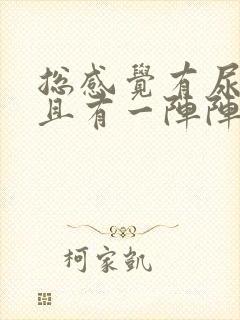 總感覺有尿
且有一陣陣
柯家凱